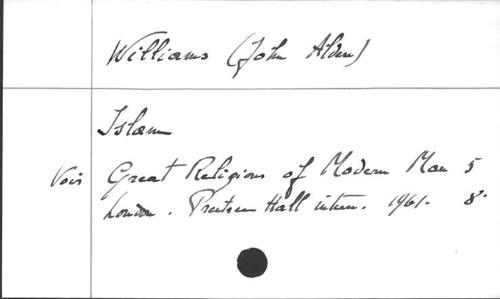 Williams (John Alden)
Islam
Vois Great Religions of Modern Man 5
London. Prentice Hall intern. 1961. 8°